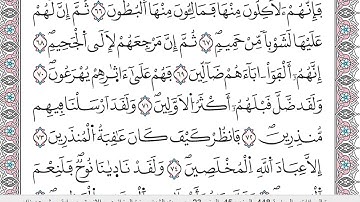 فَإِنَّهُمْ لَأٓكِلُونَ مِنْهَا فَمَالِـُٔونَ مِنْهَا ٱلْبُطُونَ ٦٦ ثُمَّ إِنَّ لَهُمْ
عَلَيْهَا لَشَوْبًا مِّنْ حَمِيمٍ ٦٧ ثُمَّ إِنَّ مَرْجِعَهُمْ لَإِلَى ٱلْجَحِيمِ ٦٨
إِنَّهُمْ أَلْفَوْا۟ ءَابَآءَهُمْ ضَآلِّينَ ٦٩ فَهُمْ عَلَىٰٓ ءَاثَٰرِهِمْ يُهْرَعُونَ ٧٠
وَلَقَدْ ضَلَّ قَبْلَهُمْ أَكْثَرُ ٱلْأَوَّلِينَ ٧١ وَلَقَدْ أَرْسَلْنَا فِيهِم
مُّنذِرِينَ ٧٢ فَٱنظُرْ كَيْفَ كَانَ عَٰقِبَةُ ٱلْمُنذَرِينَ ٧٣
إِلَّا عِبَادَ ٱللَّهِ ٱلْمُخْلَصِينَ ٧٤ وَلَقَدْ نَادَىٰنَا نُوحٌ فَلَنِعْمَ